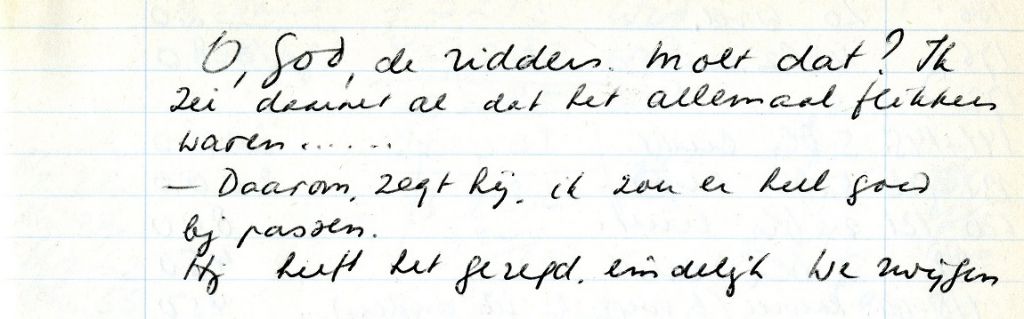 O, God, de ridders. Moet dat? Ik
zei daarnet al dat het allemaal flikkers
waren......
— Daarom, zegt hij, ik zou er heel goed
bij passen.
Hij heeft het gezegd, eindelijk We zwijgen